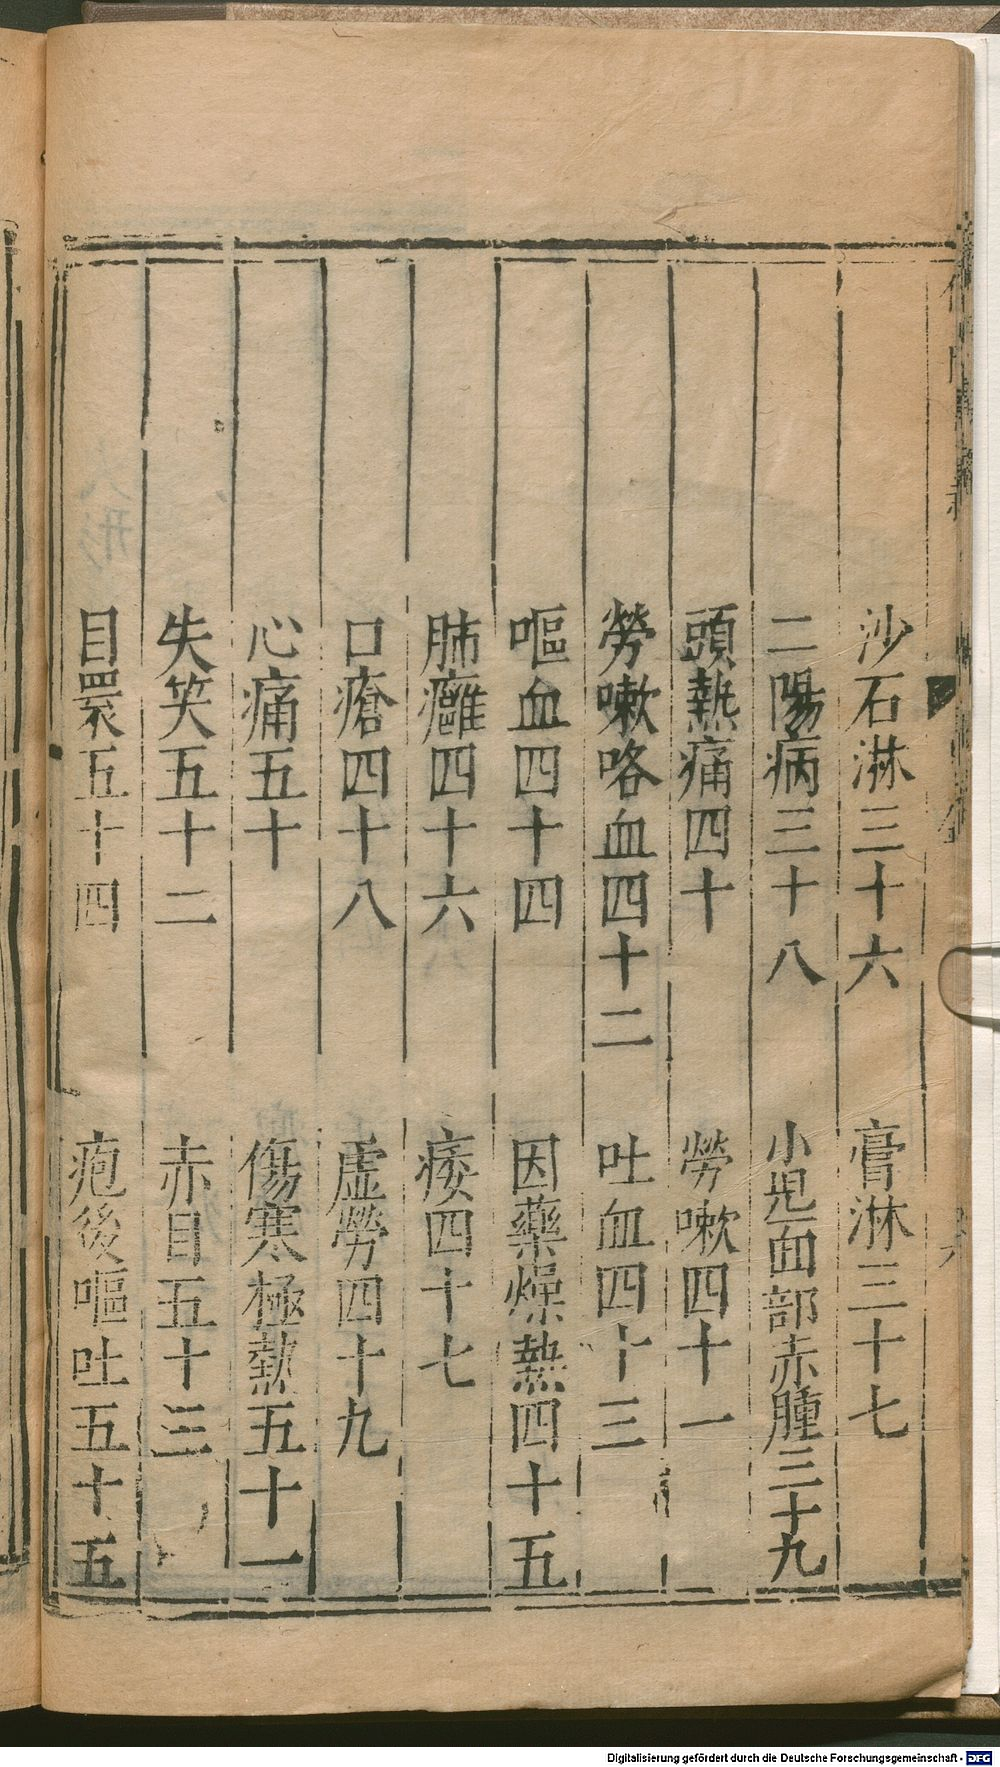 沙石淋三十六
膏淋三十七
二陽病三十八
小児面部赤腫三十九
頭熱痛四十
勞嗽四十一
勞嗽咯血四十二
吐血四十三
嘔血四十四
因藥燥熱四十五
肺癰四十六
痿四十七
口瘡四十八
虛勞四十九
心痛五十
傷寒極熱五十一
失笑五十二
赤目五十三
目睘五十四
疱後嘔吐五十五
Digitalisierung gefördert durch die Deutsche Forschungsgemeinschaft - DFG